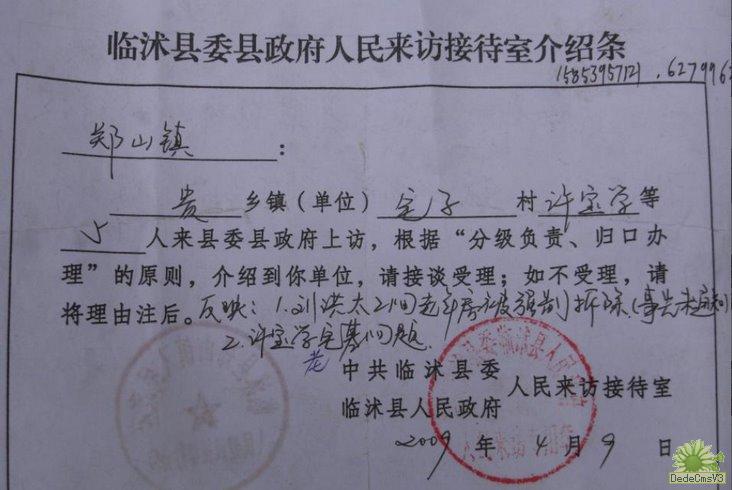 临沭县委县政府人民来访接待室介绍条
15853957121 . 627996
郑山镇 :
贵 乡镇（单位） 宅子 村 许宝学 等
5 人来县委县政府上访，根据“分级负责、归口办
理”的原则，介绍到你单位，请接谈受理；如不受理，请
将理由注后。反映：1.刘洪太2间老年房被强制拆除(事先未通知)
2.许宝学宅基问题.
老
中共临沭县委
临沭县人民政府 人民来访接待室
2009 年 4 月 9 日
DedeCmsV3